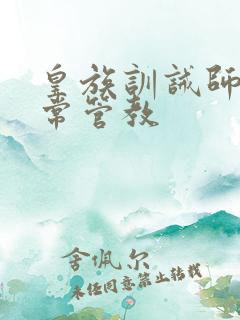 皇族訓誡師
常管教
舍佩尔
未经同意禁止转载